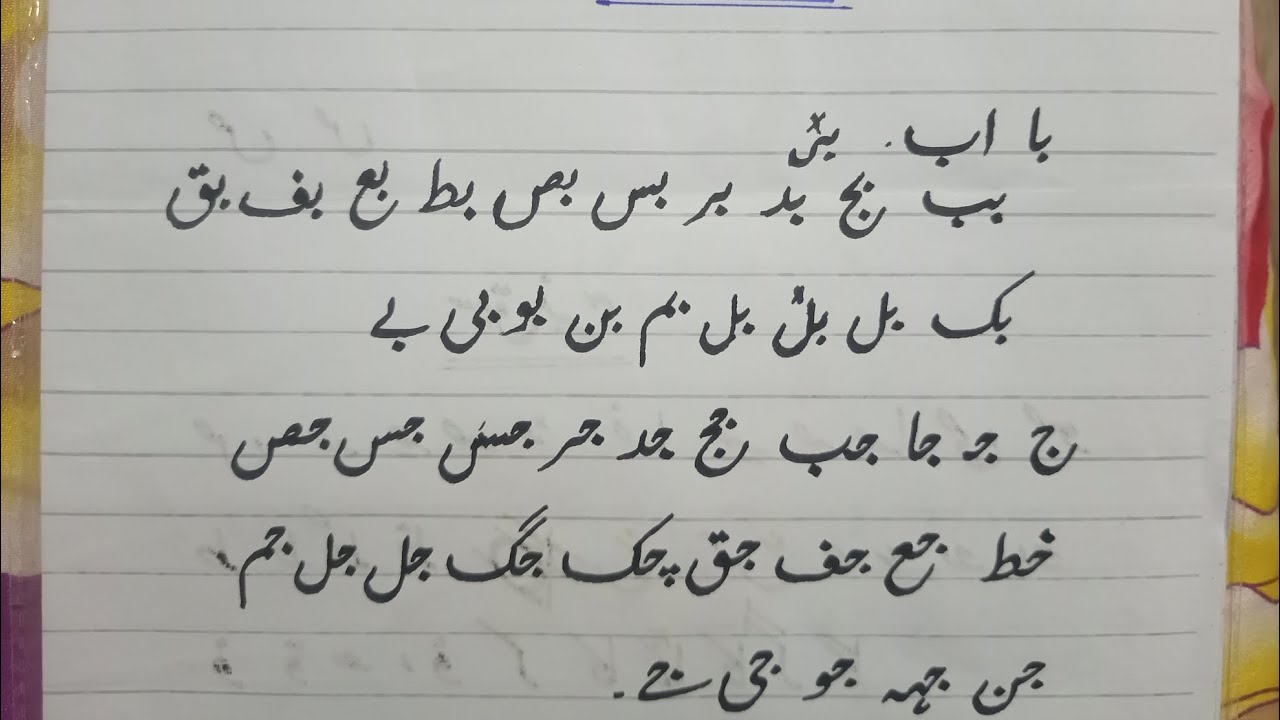 با اب
بب بج بد بر بس بص بط بع بف بق
بک بل بل بل بم بن بو بی بے
ج جد جا جب جج جد جر جس جس جص
خط جع جف جق چک جگ جل جل جم
جن جہہ جو جی جے۔